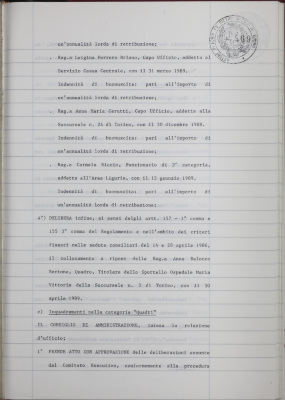 un'annualità lorda di retribuzione;
Rag.a Luigina Ferrero Milano, Capo Ufficio, addetta al
Servizio Cassa Centrale, con il 31 marzo 1989.
Indennità di buonuscita: pari all'importo di
un'annualità lorda di retribuzione;
Rag.a Anna Maria Cerutti, Capo Ufficio, addetta alla
Succursale n. 24 di Torino, con il 30 dicembre 1988.
Indennità di buonuscita: pari all'importo di
un'annualità lorda di retribuzione;
Rag.a Carmela Giunio, Funzionario di 2° categoria,
addetta all'Area Liguria, con il 13 gennaio 1989.
Indennità di buonuscita: pari all'importo di
un'annualità lorda di retribuzione;
4°) DELIBERA infine, ai sensi degli artt. 152 - 1° comma e
155 3° comma del Regolamento e nell'ambito dei criteri
fissati nelle sedute consiliari del 14 e 28 aprile 1986,
il collocamento a riposo della Rag.a Anna
Bertone, Quadro, Titolare dello Sportello Ospedale Maria
Vittoria della Succursale n. 5 di Torino, con il 30
aprile 1989.
e) Inquadramenti nella categoria "Quadri"
IL CONSIGLIO DI AMMINISTRAZIONE, intesa la relazione
d'ufficio;
1° PRENDE ATTO CON APPROVAZIONE delle deliberazioni assunte
dal Comitato Esecutivo, conformemente alla procedura